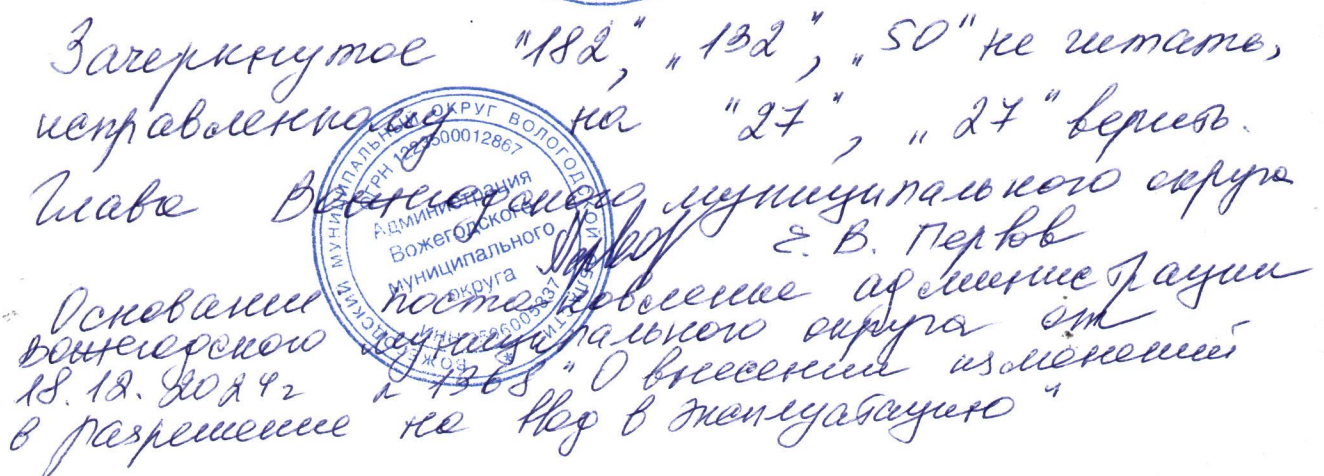 Зачеркнутое "182", "132", "50" не читать,
исправленному на "27", "27" верить.
Глава Вожегодского муниципального округа
Е. В. Первов
Основание постановление администрации
Вожегодского муниципального округа от
18.12.2024г № 1368 "О внесении изменений
в разрешение на ввод в эксплуатацию"
ВОЖЕГОДСКИЙ МУНИЦИПАЛЬНЫЙ ОКРУГ ВОЛОГОДСКОЙ ОБЛАСТИ
ОГРН 1223500012867
Администрация
Вожегодского
муниципального
округа
ИНН